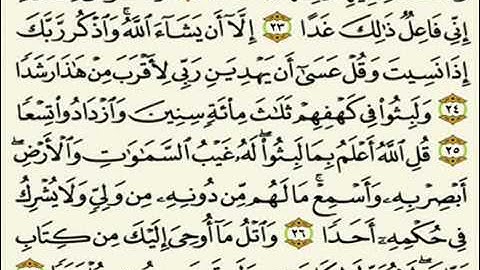 إِنِّي فَاعِلٌ ذَٰلِكَ غَدًا ٢٣ إِلَّا أَن يَشَاءَ اللَّهُ ۚ وَاذْكُر رَّبَّكَ
إِذَا نَسِيتَ وَقُلْ عَسَىٰ أَن يَهْدِيَنِ رَبِّي لِأَقْرَبَ مِنْ هَٰذَا رَشَدًا
٢٤ وَلَبِثُوا فِي كَهْفِهِمْ ثَلَاثَ مِائَةٍ سِنِينَ وَازْدَادُوا تِسْعًا
٢٥ قُلِ اللَّهُ أَعْلَمُ بِمَا لَبِثُوا ۖ لَهُ غَيْبُ السَّمَاوَاتِ وَالْأَرْضِ ۖ
أَبْصِرْ بِهِ وَأَسْمِعْ ۚ مَا لَهُم مِّن دُونِهِ مِن وَلِيٍّ وَلَا يُشْرِكُ
فِي حُكْمِهِ أَحَدًا ٢٦ وَاتْلُ مَا أُوحِيَ إِلَيْكَ مِن كِتَابِ